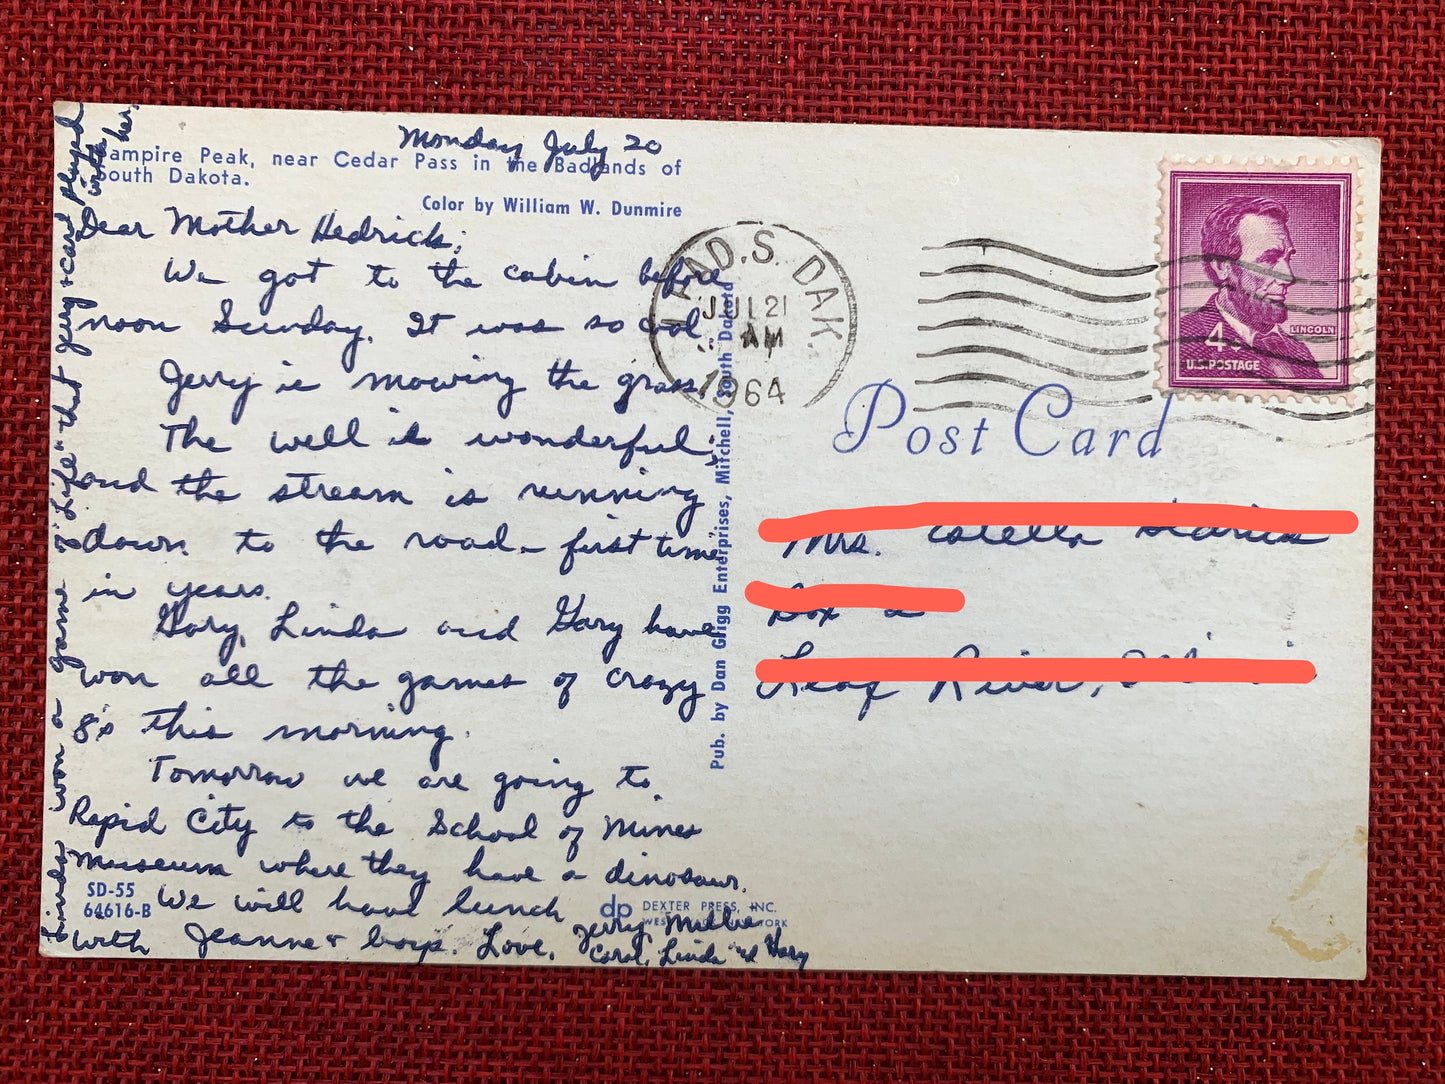 Monday July 20
Vampire Peak, near Cedar Pass in the Badlands of
South Dakota.
Color by William W. Dunmire
Dear Mother Hedrick;
We got to the cabin before
noon Sunday. It was so cool
Jerry is mowing the grass.
The well is wonderful,
and the stream is running
down to the road - first time
in years.
Gary, Linda and Gary have
won all the games of crazy
8's this morning.
Tomorrow we are going to
Rapid City to the School of Mines
Museum where they have a dinosaur.
We will have lunch
with Jeanne + boys. Love, Jerry, Millie
Carol, Linda & Gary
Linda won a game of "Life" that Jerry + Carol played
with her.
SD-55
64616-B
dp DEXTER PRESS, INC.
WEST NYACK, NEW YORK
Pub. by Dan Grigg Enterprises, Mitchell, South Dakota
LEAD, S. DAK.
JUL 21
AM
1964
4¢
LINCOLN
U.S. POSTAGE
Post Card
Mrs.
Box
Leaf River,